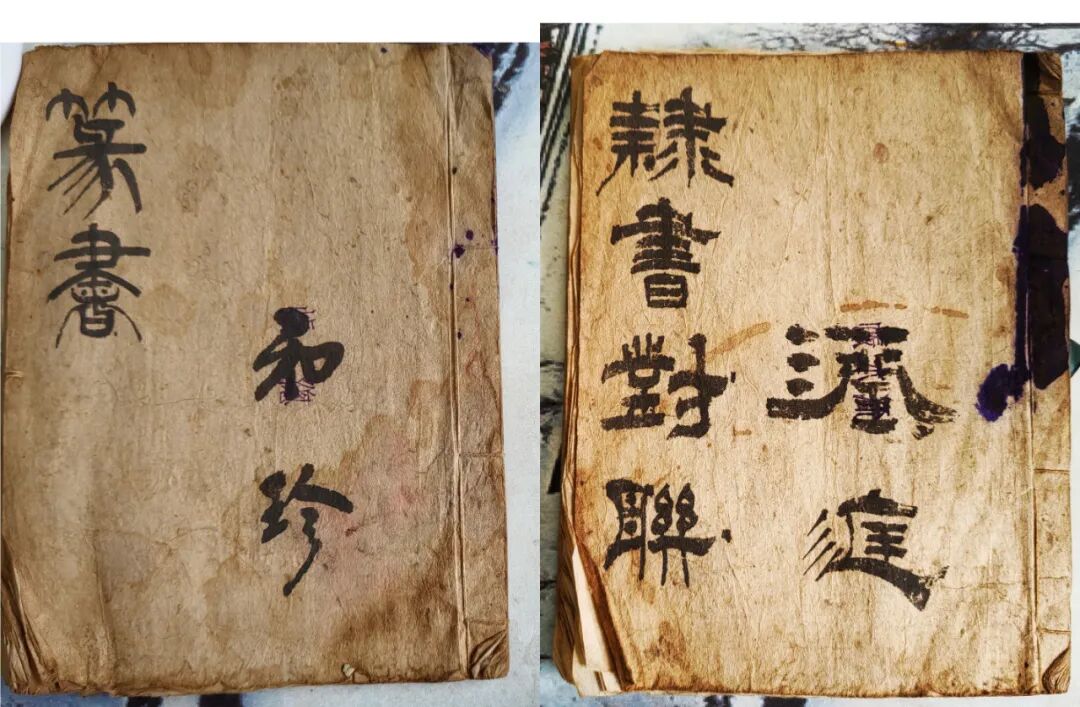 篆書
和珍
隸書對聯
進